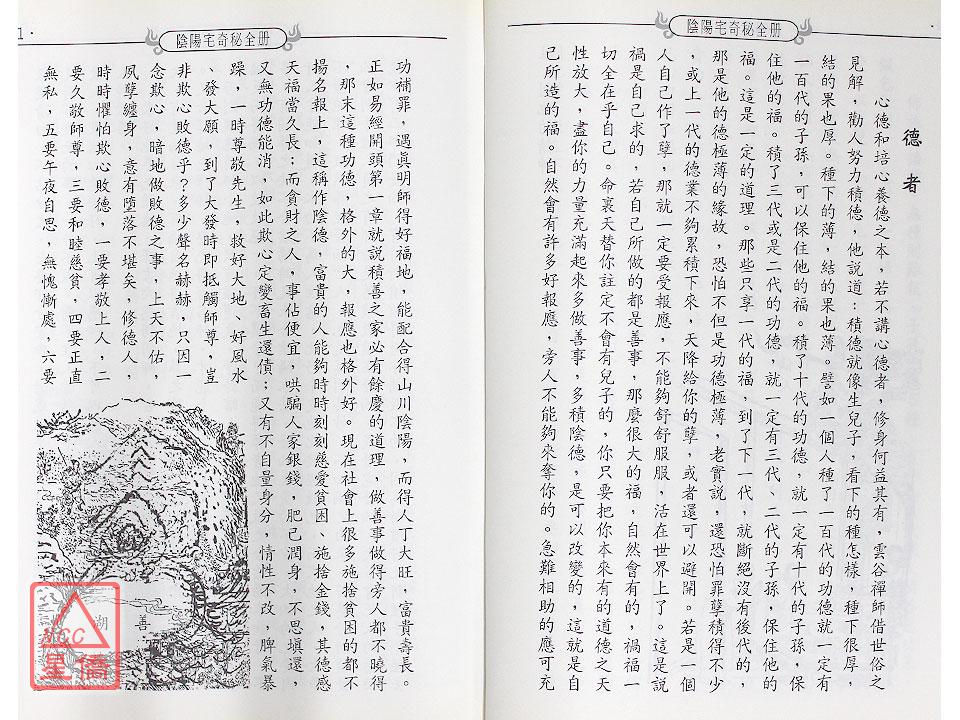 陰陽宅奇秘全册
德者
心德和培心養德之本，若不講心德者，修身何益其有，雲谷禪師借世俗之
見解，勸人努力積德，他說道：積德就像生兒子，看下的種怎樣，種下很厚，
結的果也厚。種下的薄，結的果也薄。譬如一個人種了一百代的功德就一定有
一百代的子孫，可以保住他的福。積了十代的功德，就一定有十代的子孫，保
住他的福。積了三代或是二代的功德，就一定有三代、二代的子孫，保住他的
福。這是一定的道理。那些只享一代的福，到了下一代，就斷絕沒有後代的，
那是他的德極薄的緣故，恐怕不但是功德極薄，老實說，還恐怕罪孽積得不少
，或上一代的德業不夠累積下來，天降給你的孽，或者還可以避開。若是一個
人自己作了孽，那就一定要受報應，不能夠舒舒服服，活在世界上了。這是說
禍是自己求的，若自己所做的都是善事，那麼很大的福，自然會有的，禍福一
切全在乎自己。命裏天替你註定不會有兒子的，你只要把你本來有的道德之天
性放大，盡你的力量充滿起來多做善事，多積陰德，是可以改變的，這就是自
己所造的福。自然會有許多好報應，旁人不能夠來奪你的。急難相助的應可充
陰陽宅奇秘全册
1·
功補罪，遇眞明師得好福地，能配合得山川陰陽，而得人丁大旺，富貴壽長。
正如易經開頭第一章就說積善之家必有餘慶的道理，做善事做得旁人都不曉得
，那末這種功德，格外的大，報應也格外好。現在社會上很多施捨貧困的都不
揚名報上，這稱作陰德，富貴的人能夠時時刻刻慈愛貧困、施捨金錢，其德感
天福當久長；而貪財之人，事佔便宜，哄騙人家銀錢，肥己潤身，不思塡還，
又無功德能消，如此欺心定變畜生還債；又有不自量身分事，情性不改，脾氣暴
躁，一時尊敬先生，救好大地、好風水
、發大願，到了大發時即抵觸師尊，豈
非欺心敗德乎？多少聲名赫赫，只因一
念欺心，暗地做敗德之事，上天不佑，
夙孽纏身，意有墮落不堪矣，修德人，
時時懼怕欺心敗德，一要孝敬上人，二
要久敬師尊，三要和睦慈貧，四要正直
無私，五要午夜自思，無愧慚處，六要
善
湖
NCC
星僑